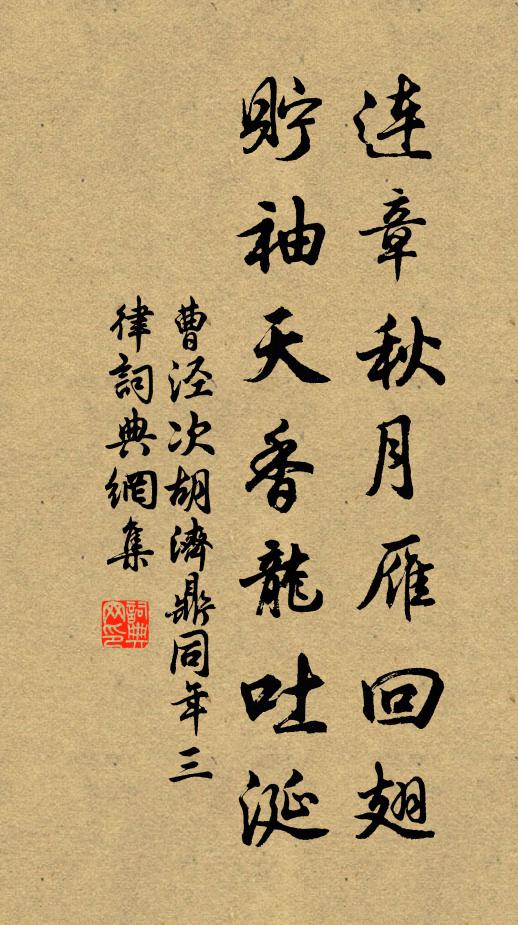 连章秋月雁回翅
貯袖天香龍吐涎
曹泾次胡濟鼎同年三
律詞典網集
詞典
网印